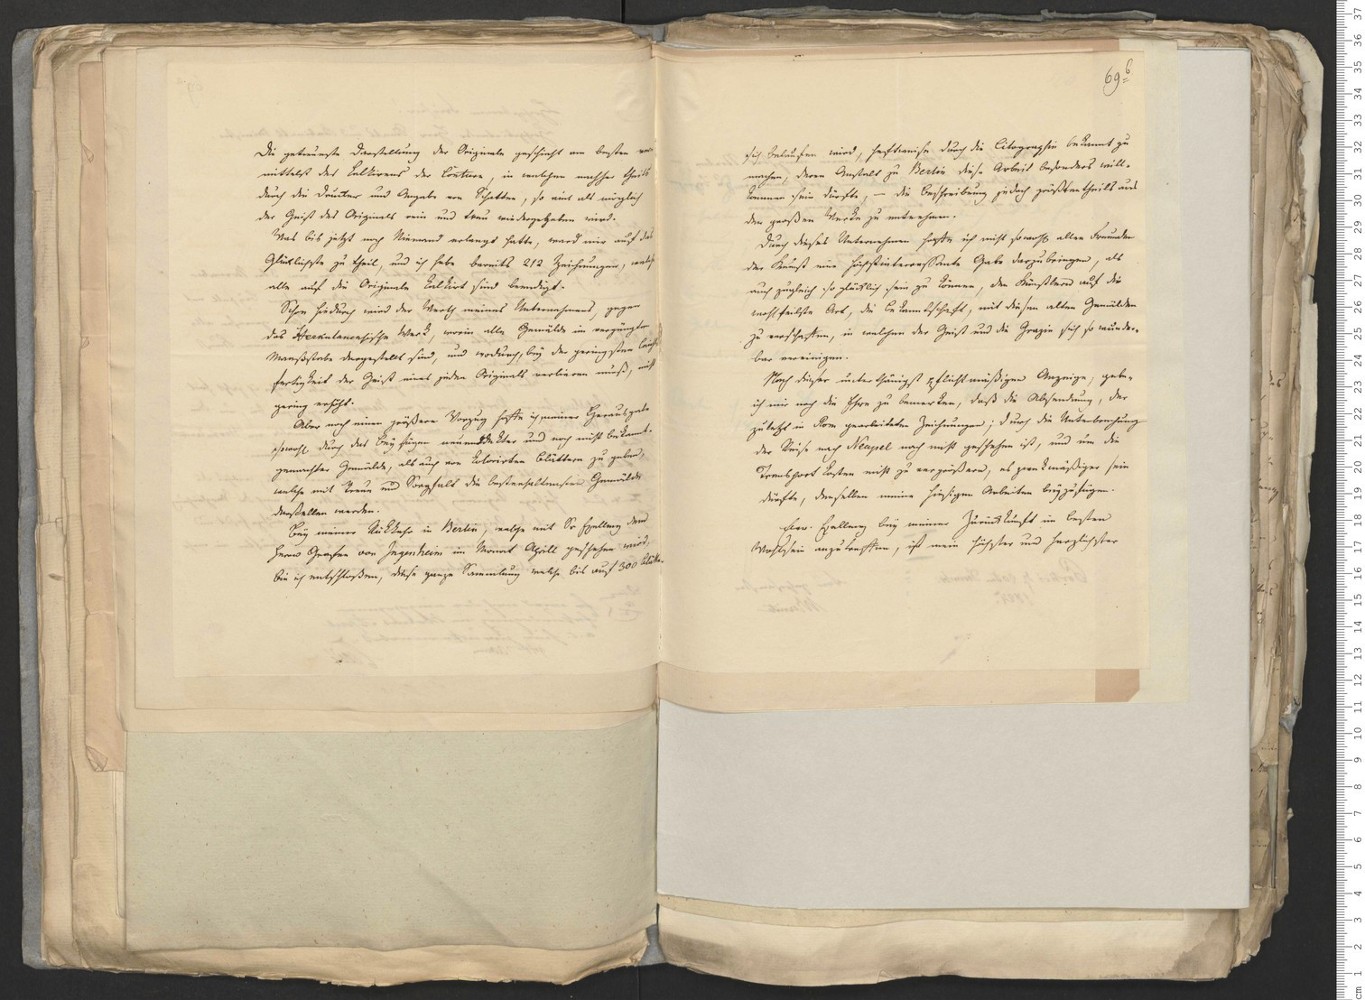 Die getreueste Darstellung der Originale geschieht am besten ver-
mittelst des Calkirens der Conture, in welchen nachher theils
durch die Däuter und Angabe von Schatten, so viel als möglich
der Geist des Originals rein und treu wiedergegeben wird.
Was bis jetzt noch Niemand erlangt hatte, ward mir auf das
Glücklichste zu Theil, und ich habe bereits 212 Zeichnungen, welche
alle auf die Originale Calkirt sind beendigt.
Schon hiedurch wird der Werth meines Unternehmens, gegen
das Herkulanensische Werk, worin alle Gemälde im verjüngten
Maaßstabe dargestellt sind, und wodurch, bey der geringsten
fertigkeit der Geist eines jeden Originals verlieren muß, nicht
gering erhöht.
Aber noch einen größern Vorzug hoffe ich meiner Herausgabe
sowohl durch das Beyfügen neuentdekter und noch nicht bekannt-
gemachter Gemälde, als auch von Kolorirten Blättern zu geben,
welche mit Treue und Sorgfalt die besterhaltensten Gemälde
darstellen werden.
Bey meiner Rükkehr in Berlin, welche mit Sr Exellenz dem
Herrn Grafen von Ingenheim im Monat Aprill geschehen wird,
bin ich entschloßen, diese ganze Sammlung welche bis auf 300
69b
sich belaufen wird, heftweise durch die Litographie bekannt zu
machen, deren Anstalt zu Berlin diese Arbeit besonders will-
kommen sein dürfte, – die Beschreibung jedoch größtentheils aus
dem großen Werke zu entnehmen.
Durch dieses Unternehmen hoffe ich nicht sowohl allen Freunden
der Kunst eine höchstinteressante Gabe darzubringen, als
auch zugleich so glücklich sein zu können, den Künstlern auf die
wohlfeilste Art, die Bekanntschaft, mit diesen alten Gemälden
zu verschaffen, in welchen der Geist und die Grazie sich so wunder-
bar vereinigen.
Nach dieser unterthänigst pflichtmäßigen Anzeige, gebe
ich mir noch die Ehre zu bemerken, daß die Absendung, der
zuletzt in Rom gearbeiteten Zeichnungen; durch die Unterbrechung
der Reise nach Neapel noch nicht geschehen ist, und um die
Transport Kosten nicht zu vergrößern, es zwekmäßiger sein
dürfte, denselben meine hiesigen Arbeiten beyzufügen.
Ew. Exellenz bey meiner Zurückkunft im besten
Wohlsein anzutreffen, ist mein höchster und herzlichster